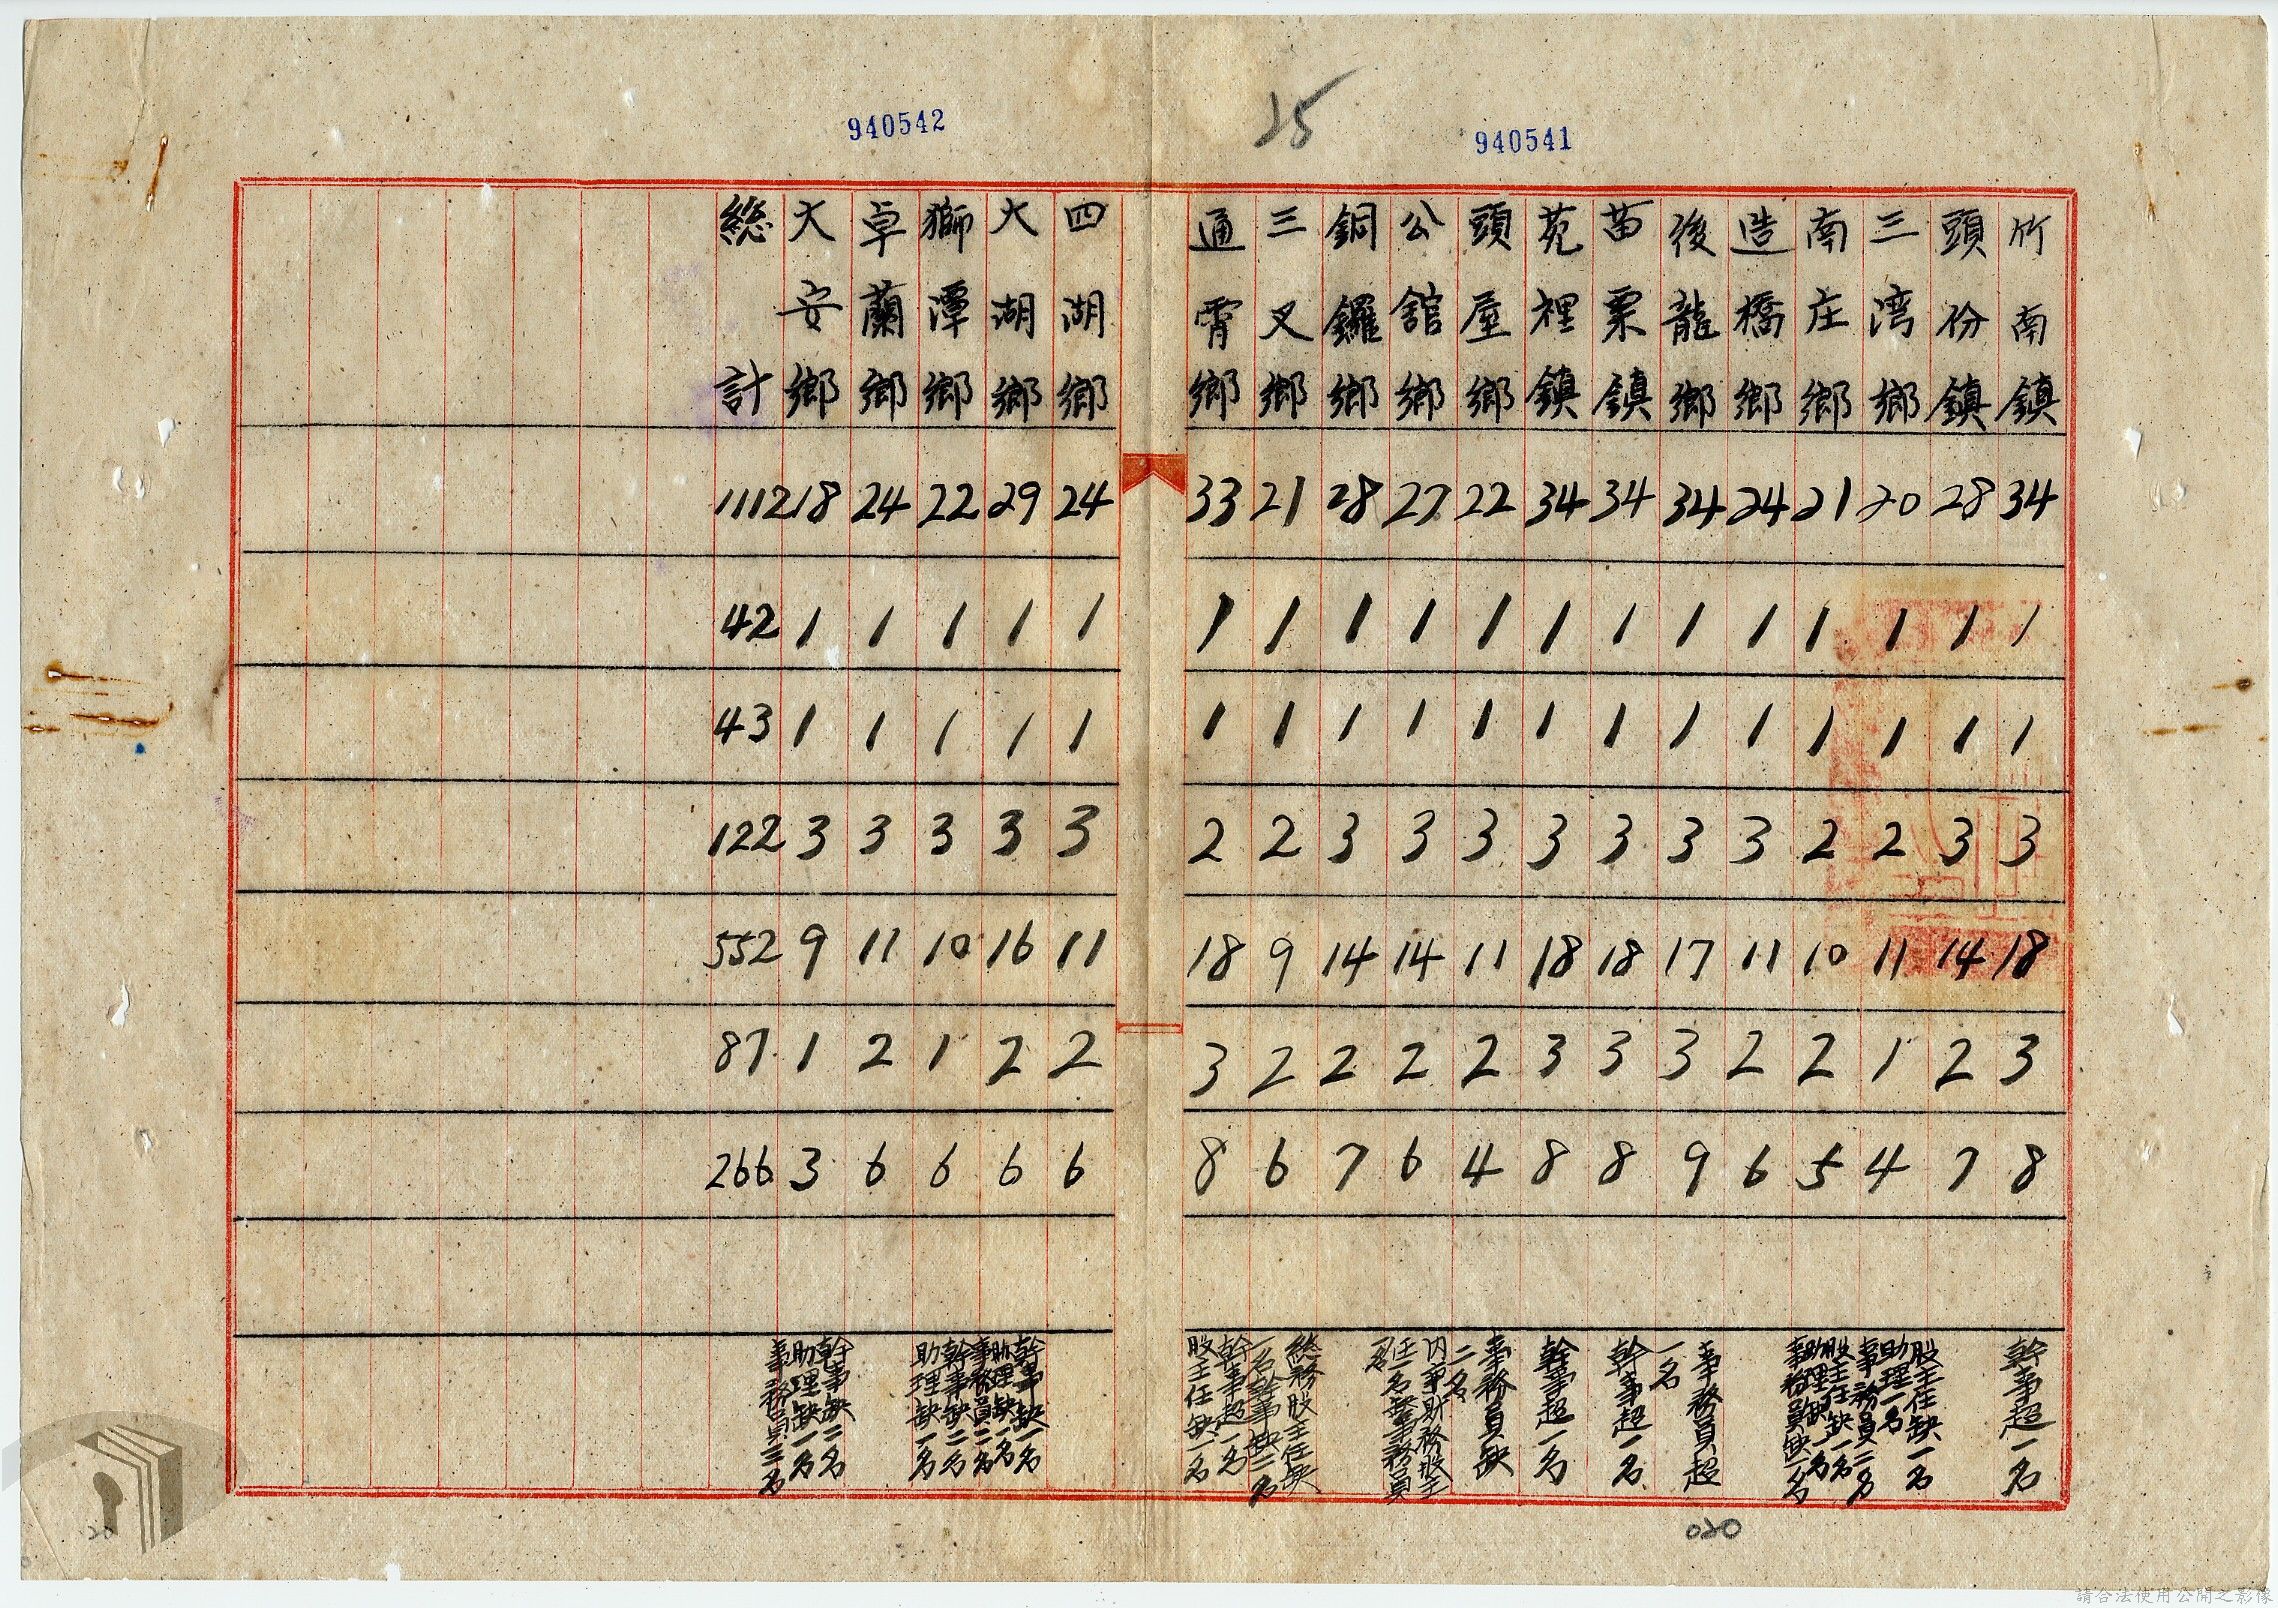 940542
25
940541
竹南鎮 34 1 1 3 18 3 8 幹事超一名
頭份鎮 28 1 1 3 14 2 7
三湾鄉 20 1 1 2 11 1 4 股主任缺一名 助理一名 事務員二名
南庄鄉 21 1 1 2 10 2 5 股主任缺一名 助理缺一名 事務員缺一名
造橋鄉 24 1 1 3 11 2 6
後龍鄉 34 1 1 3 17 3 9 事務員超一名
苗栗鎮 34 1 1 3 18 3 8 幹事超一名
苑裡鎮 34 1 1 3 18 3 8 幹事超一名
頭屋鄉 22 1 1 3 11 2 4 事務員缺二名
公館鄉 27 1 1 3 14 2 6 內市財務股主任一名缺事務員一名
銅鑼鄉 28 1 1 3 14 2 7
三叉鄉 21 1 1 2 9 2 6 総務股主任缺一名幹事缺二名
通霄鄉 33 1 1 2 18 3 8 幹事超一名 股主任缺一名
四湖鄉 24 1 1 3 11 2 6
大湖鄉 29 1 1 3 16 2 6 幹事缺一名 助理缺一名 事務員二名
獅潭鄉 22 1 1 3 10 1 6 幹事缺二名 助理缺一名
卓蘭鄉 24 1 1 3 11 2 6
大安鄉 18 1 1 3 9 1 3 幹事缺二名 助理缺一名 事務員三名
総計 1112 42 43 122 552 87 266
020
20
請合法使用公開之影像